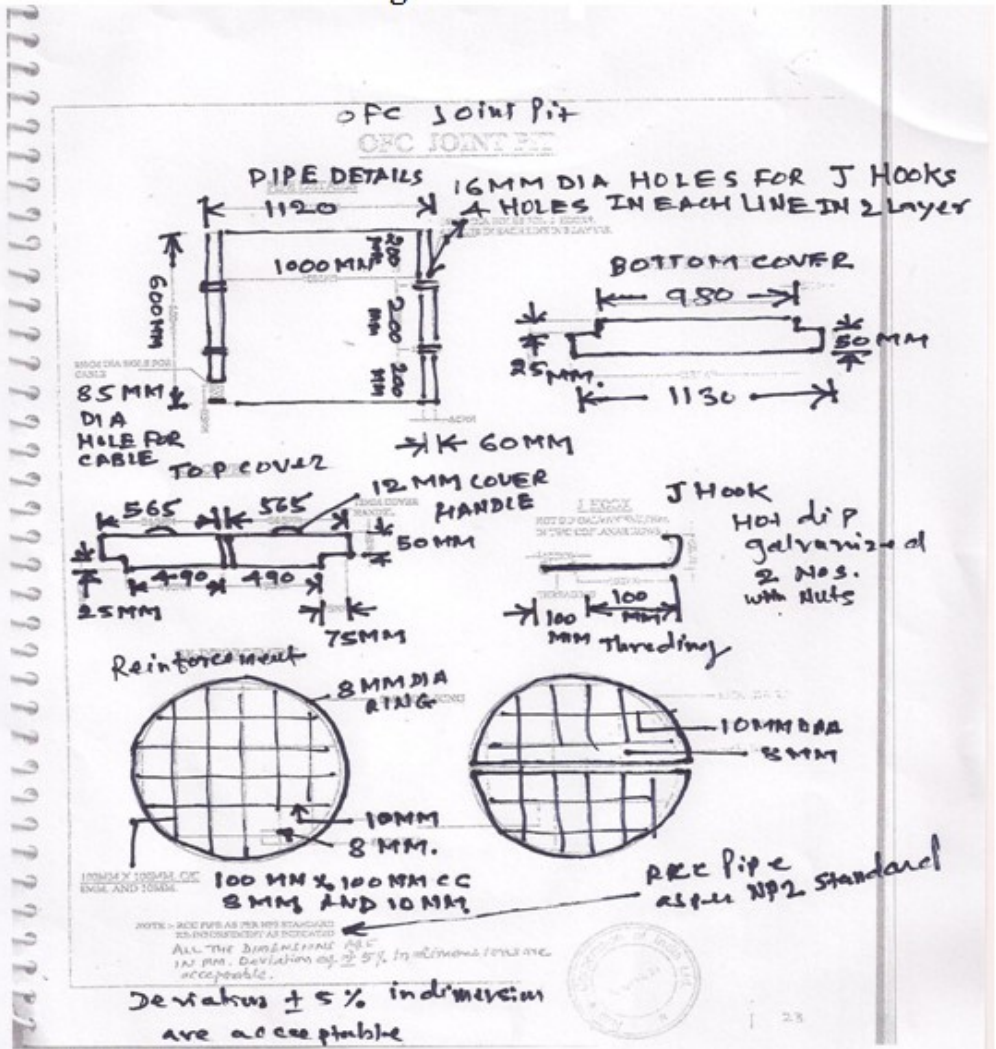 OFC Joint Pit
OFC JOINT PIT
PIPE DETAILS
16MM DIA HOLES FOR J HOOKS
4 HOLES IN EACH LINE IN 2 Layer
1120
1000 MM
200 MM
200 MM
200 MM
600MM
85MM DIA HOLE FOR
CABLE
85MM
DIA
HOLE FOR
CABLE
60MM
BOTTOM COVER
980
50 MM
25 MM.
1130
TOP COVER
12 MM COVER
HANDLE
565
565
50MM
490
490
25MM
75MM
J HOOK
J Hook
Hot dip
galvanized
2 Nos.
with Nuts
100
MM
100
MM
Threding
Reinforcement
8MMDIA
RING
10MM
8 MM.
10MM DIA
8MM
100MM X 100MM C/C
8MM. AND 10MM.
100 MM X 100 MM CC
8MM AND 10MM
RCC Pipe
as per NP2 Standard
NOTE :- RCC PIPE AS PER NP2 STANDARD
REINFORCEMENT AS INDICATED
ALL THE DIMENSIONS ARE
IN MM. Deviation of ± 5% in dimensions are
acceptable.
Deviation ± 5% in dimension
are acceptable
23